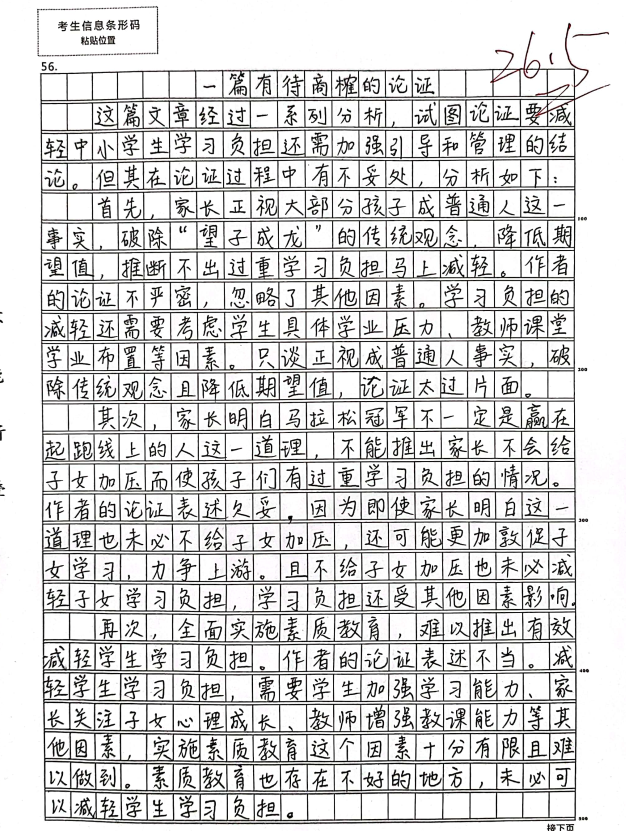 考生信息条形码
粘贴位置
26.5
56.
一篇有待商榷的论证
这篇文章经过一系列分析，试图论证要减
轻中小学生学习负担还需加强引导和管理的结
论。但其在论证过程中有不妥处，分析如下：
首先，家长正视大部分孩子成普通人这一
100
事实，破除“望子成龙”的传统观念，降低期
望值，推断不出过重学习负担马上减轻。作者
的论证不严密，忽略了其他因素。学习负担的
减轻还需要考虑学生具体学业压力、教师课堂
学业布置等因素。只谈正视成普通人事实，破
200
除传统观念且降低期望值，论证太过片面。
其次，家长明白马拉松冠军不一定是赢在
起跑线上的人这一道理，不能推出家长不会给
子女加压而使孩子们有过重学习负担的情况。
作者的论证表述欠妥，因为即使家长明白这一
300
道理也未必不给子女加压，还可能更加敦促子
女学习，力争上游。且不给子女加压也未必减
轻子女学习负担，学习负担还受其他因素影响。
再次，全面实施素质教育，难以推出有效
减轻学生学习负担。作者的论证表述不当。减
400
轻学生学习负担，需要学生加强学习能力、家
长关注子女心理成长、教师增强教课能力等其
他因素，实施素质教育这个因素十分有限且难
以做到。素质教育也存在不好的地方，未必可
以减轻学生学习负担。
500
接下页